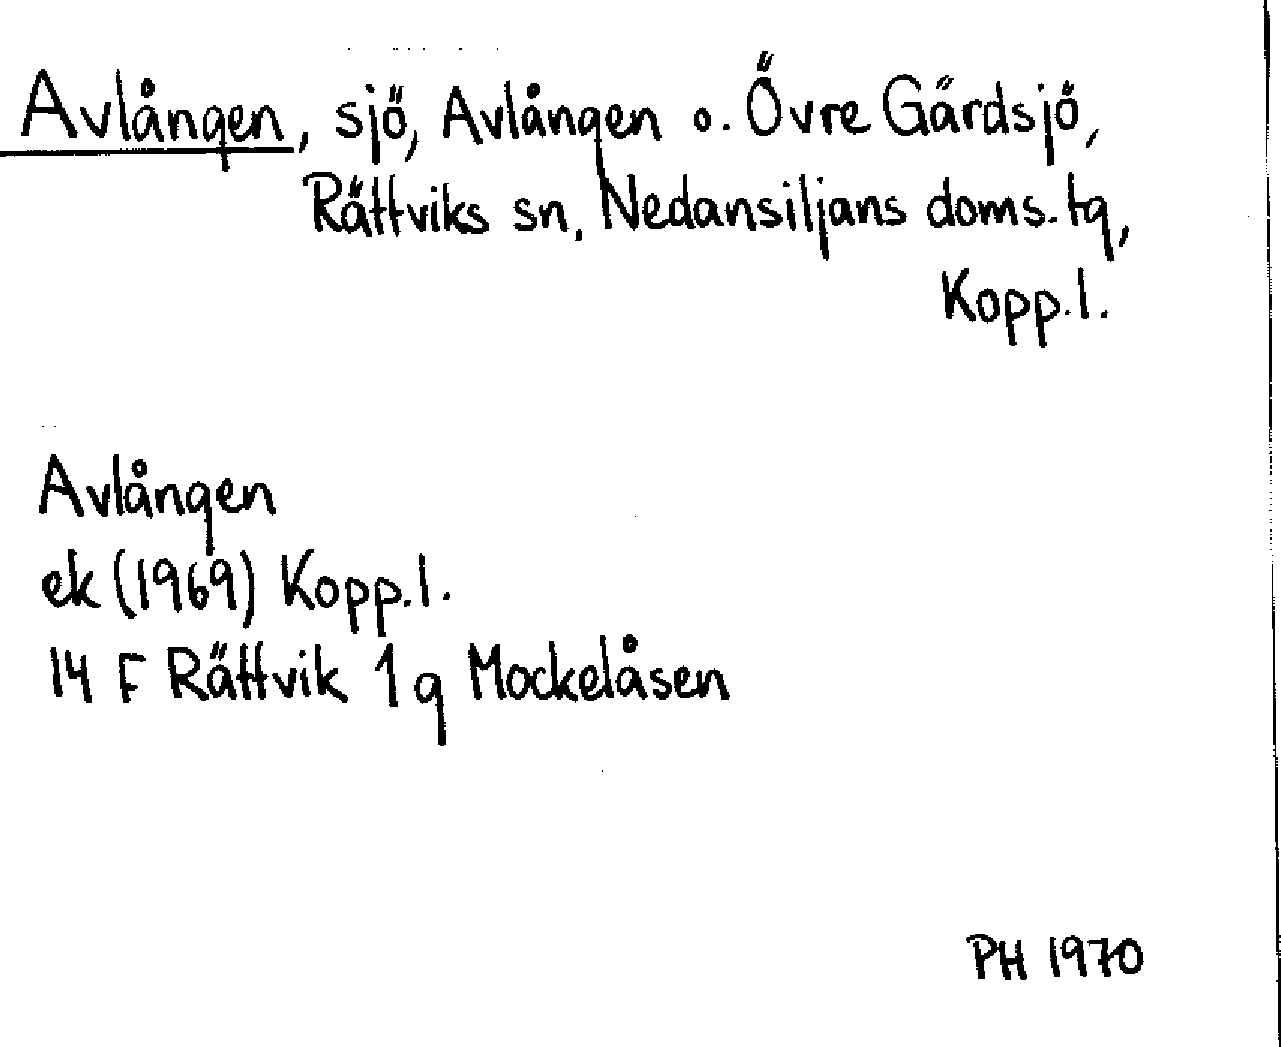 Avlången, sjö, Avlången o. Övre Gärdsjö,
Rättviks sn, Nedansiljans doms. tg,
Kopp. l.
Avlången
ek (1969) Kopp. l.
14 F Rättvik 1 g Mockelåsen
PH 1970